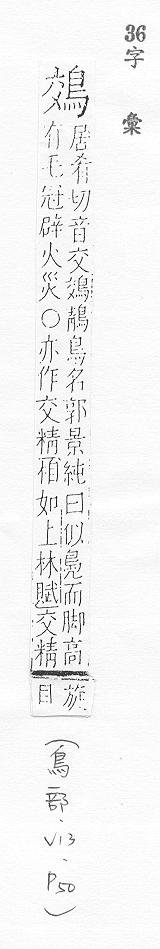 36字彙
鵁
居肴切音交鵁鶄鳥名郭景純曰似鳧而脚高
有毛冠辟火災○亦作交精相如上林賦交精
旋
目
(鳥部·V13·P50)